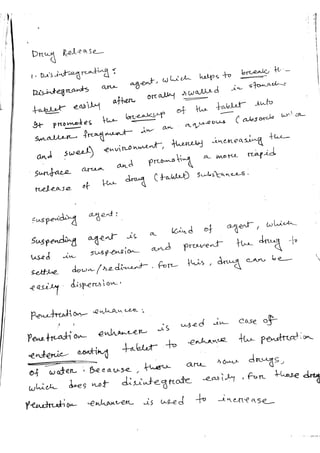 Drug Release
1. Disintegreating :
Disintegrants are agent, which helps to break the
tablet easily after oreally swalled in stomach.
It promotes the breakup of the tablet into
smaller fragment in an aqueous (absorb
and swell) environment, thereby increasing the
surface area and promoting a more rapid
release of the drug (tablet) substances.
Suspending agent :
Suspending agent is a kind of agent, which
used in suspension and prevent the drug to
settle down/sediment. For this, drug can be
easily dispersion.
Penetration enhancer :
Penetration enhancer is used in case of
enteric coating tablet to enhance the penetration
of water. Because, there are some drugs,
which does not disintegrate easily. For those drug
Penetration enhancer is used to increase